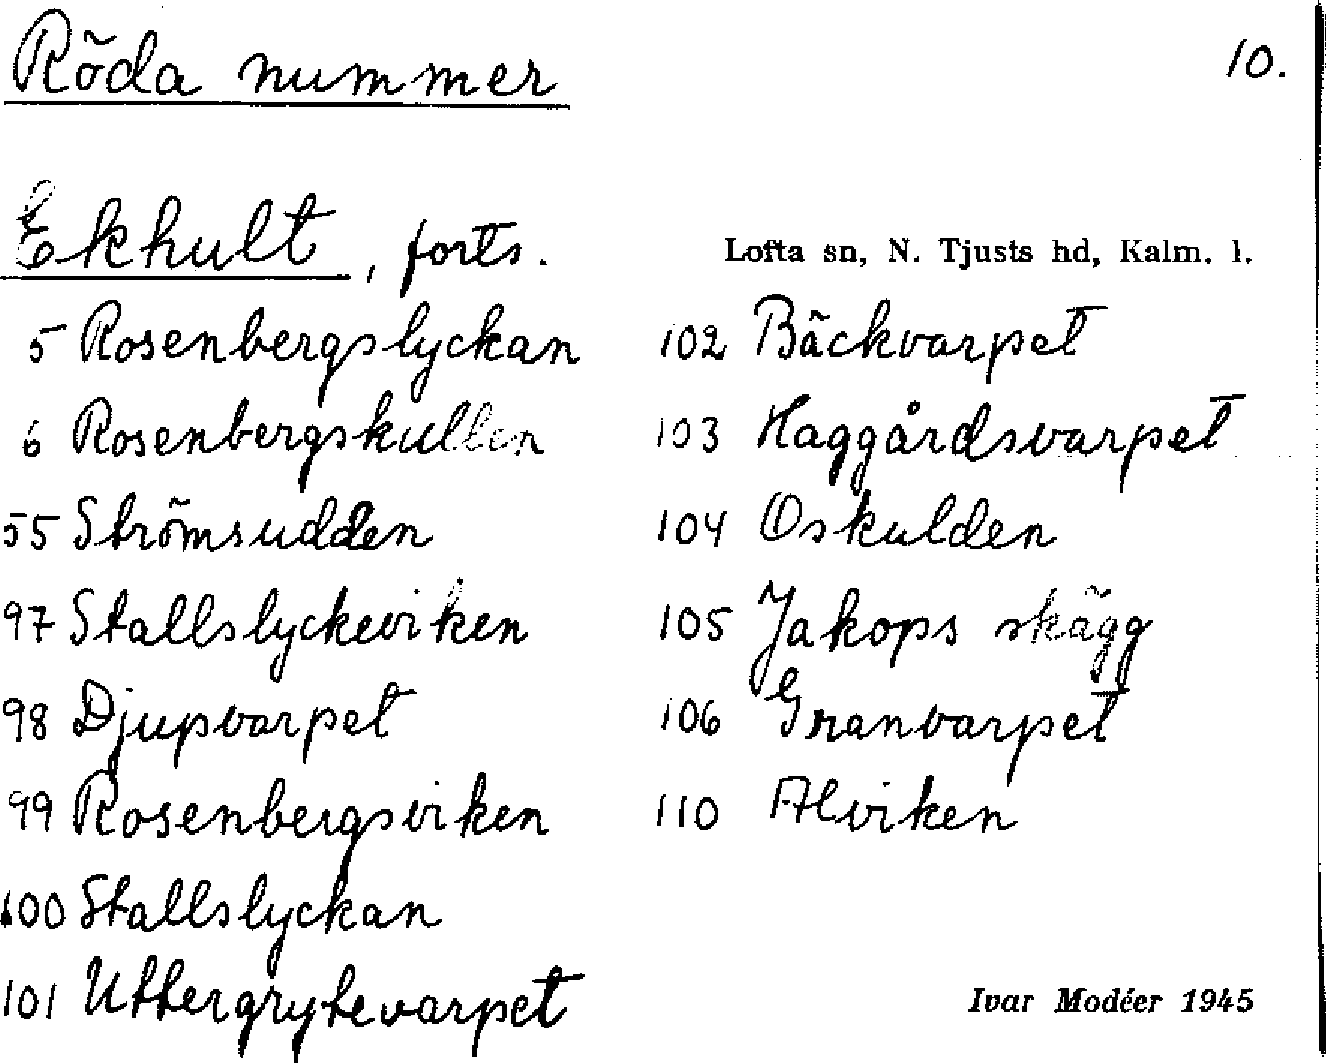 Röda nummer
10.
Ekhult, forts.
Lofta sn, N. Tjusts hd, Kalm. l.
5 Rosenbergslyckan
6 Rosenbergskullen
55 Strömsudden
97 Stallslyckeviken
98 Djupvarpet
99 Rosenbergsviken
100 Stallslyckan
101 Uttergrytevarpet
102 Bäckvarpet
103 Haggårdsvarpet
104 Oskulden
105 Jakops skägg
106 Granvarpet
110 Alviken
Ivar Modéer 1945